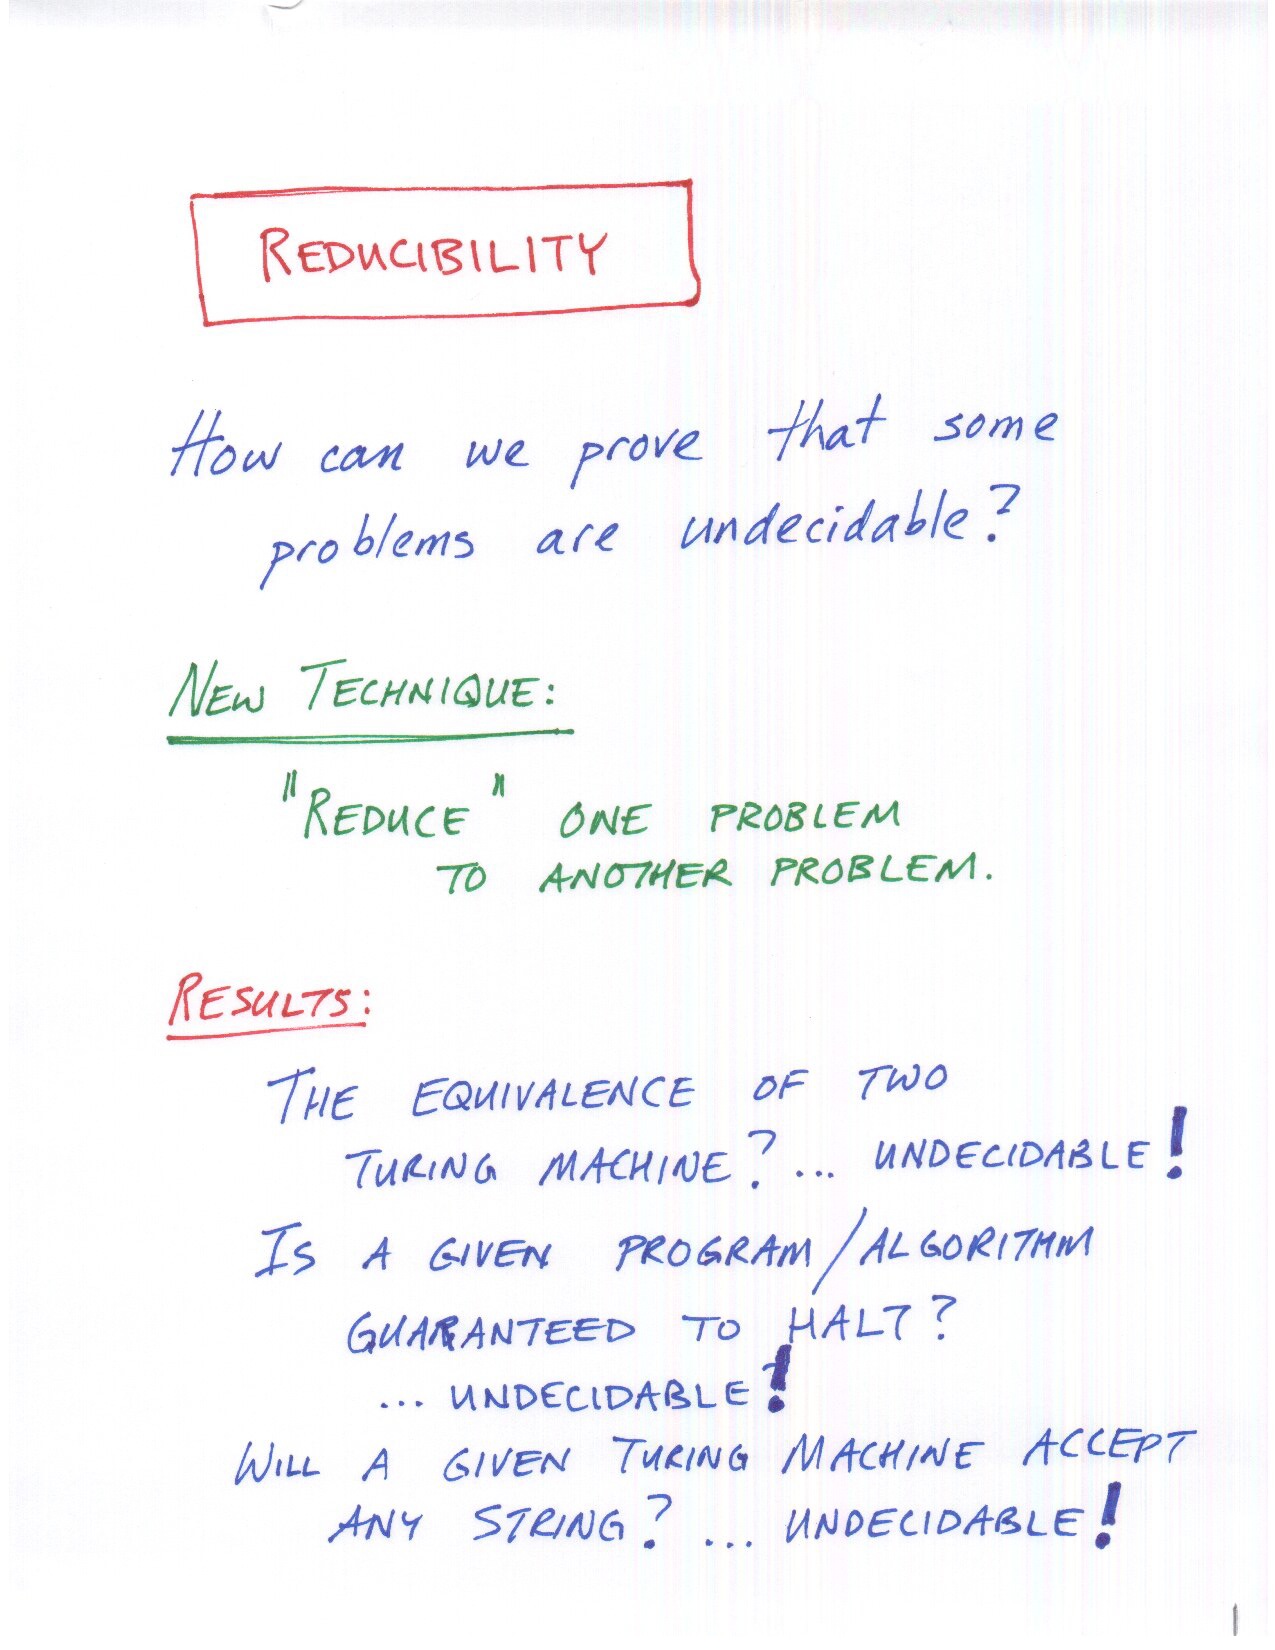 REDUCIBILITY
How can we prove that some
problems are undecidable?
NEW TECHNIQUE:
"REDUCE" ONE PROBLEM
TO ANOTHER PROBLEM.
RESULTS:
THE EQUIVALENCE OF TWO
TURING MACHINE? ... UNDECIDABLE!
IS A GIVEN PROGRAM/ALGORITHM
GUARANTEED TO HALT?
... UNDECIDABLE!
WILL A GIVEN TURING MACHINE ACCEPT
ANY STRING? ... UNDECIDABLE!
1